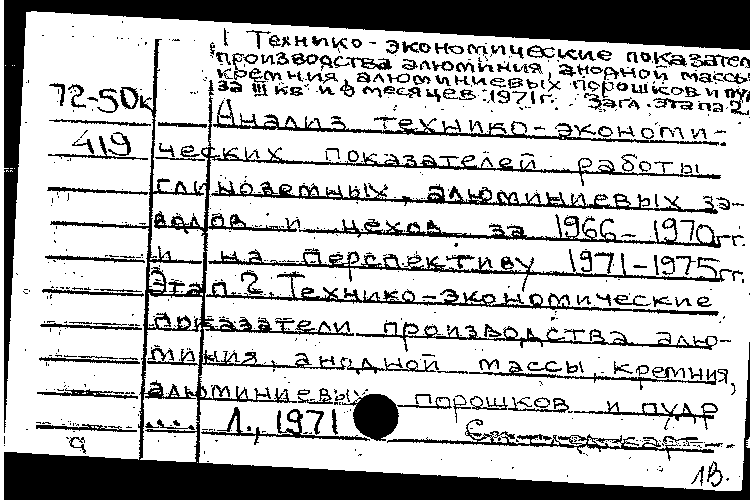 1 Технико-экономические показател
производства алюминия, анодной массы
кремния, алюминиевых порошков и пу
за III кв и 9 месяцев 1971г. Загл. этапа 2
72-50к
Анализ технико-экономи-
419
ческих показателей работы
глиноземных, алюминиевых за-
водов и цехов за 1966-1970гг.
и на перспективу 1971-1975гг.
Этап 2. Технико-экономические
показатели производства алю-
миния, анодной массы, кремния,
алюминиевых порошков и пудр
.... Л., 1971
9
1В.